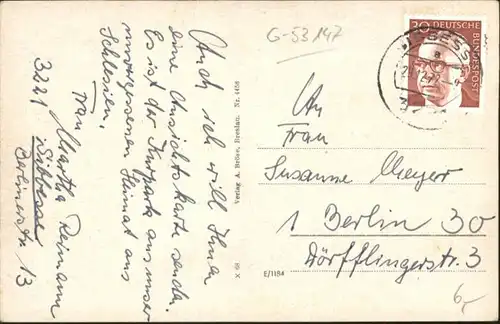 G-53147
30 DEUTSCHE
BUNDESPOST
Auch ich will Ihnen
eine Ansichtskarte senden.
Es ist der Kurpark aus unser
unvergessenen Heimat aus
Schlesien.
Frau
Martha Reimann
3221 Sibbesse
Berlinerstr. 13
Verlag A. Bröse, Breslau. Nr. 4456
X 68
E/1184
An
Frau
Susanne Meyer
1 Berlin 30
Dörfflingerstr. 3
6,-